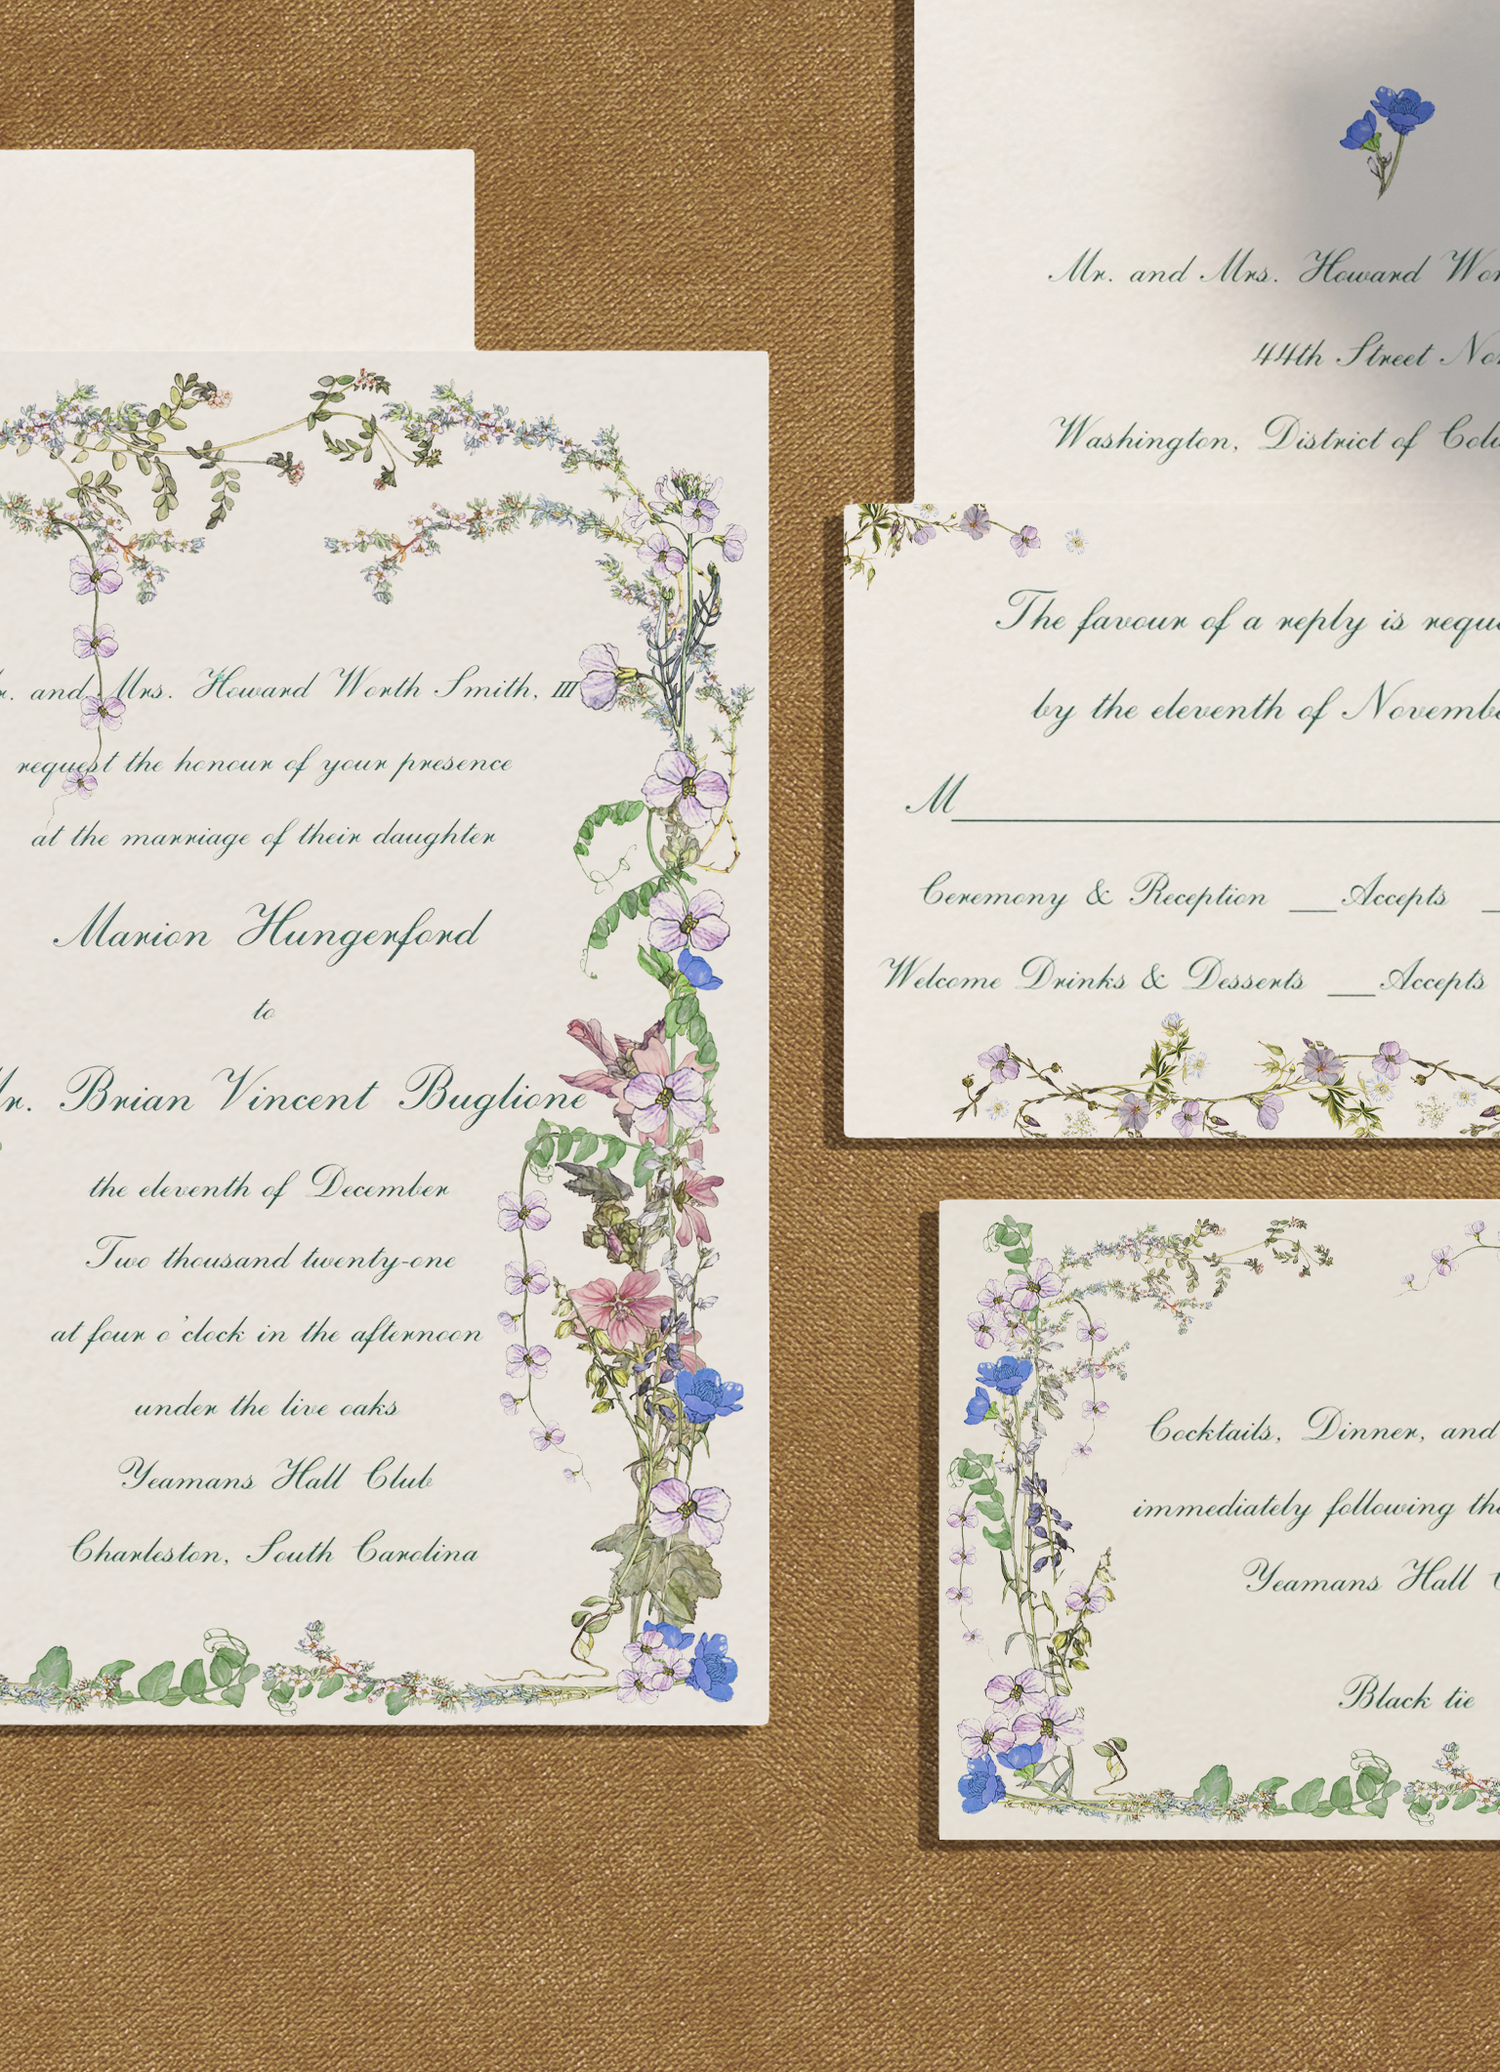 r. and Mrs. Howard Worth Smith, III
request the honour of your presence
at the marriage of their daughter
Marion Hungerford
to
Mr. Brian Vincent Buglione
the eleventh of December
Two thousand twenty-one
at four o'clock in the afternoon
under the live oaks
Yeamans Hall Club
Charleston, South Carolina
Mr. and Mrs. Howard Wor
44th Street Nor
Washington, District of Colu
The favour of a reply is reque
by the eleventh of Novembe
M
Ceremony & Reception ___Accepts
Welcome Drinks & Desserts ___Accepts
Cocktails, Dinner, and
immediately following the
Yeamans Hall C
Black tie